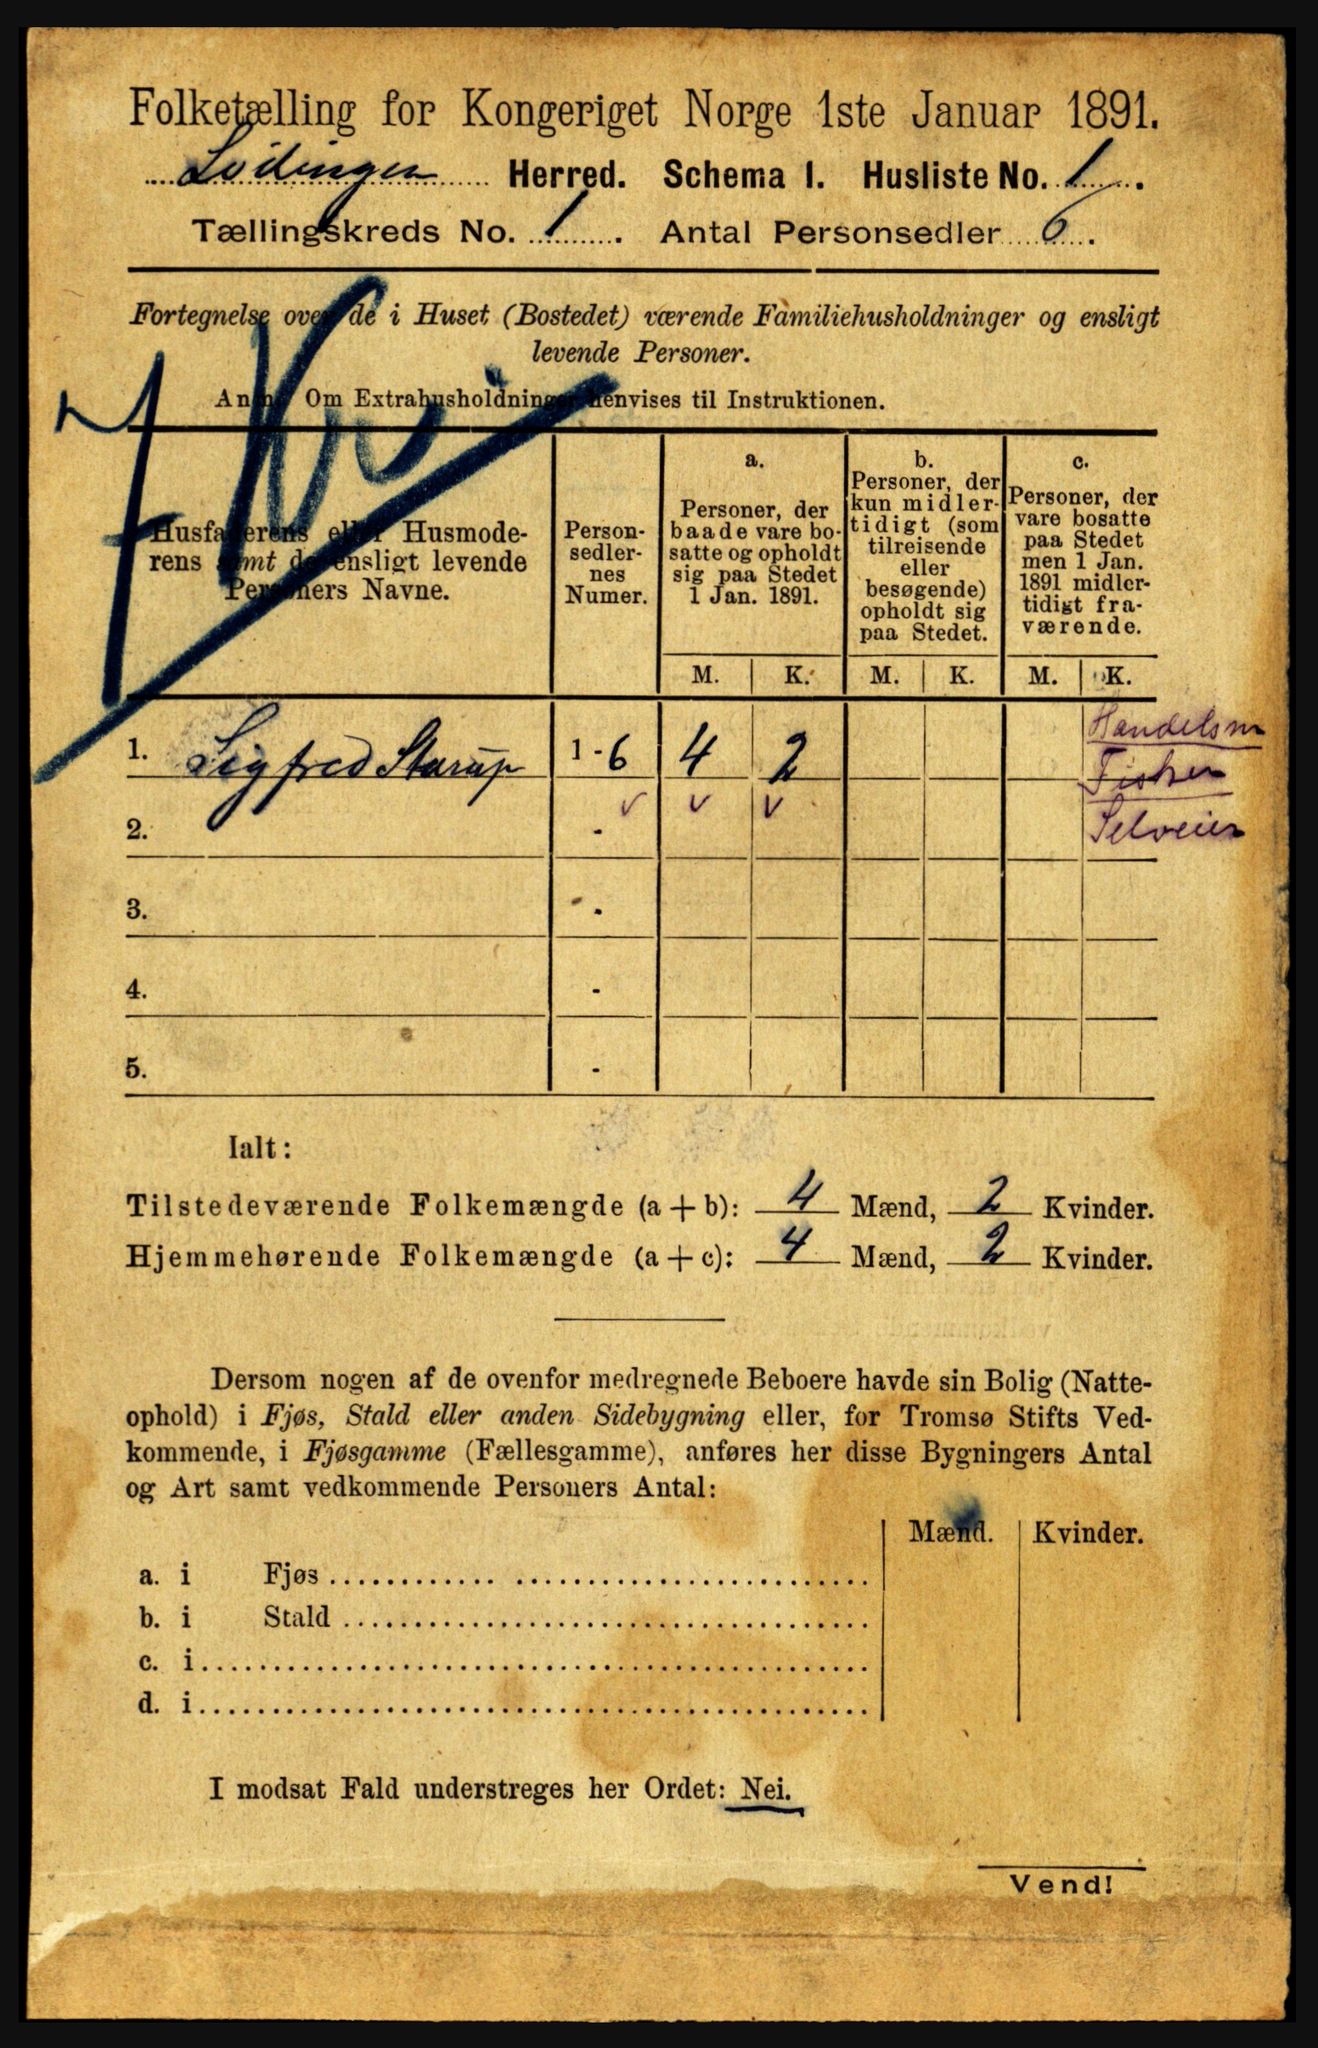 Folketælling for Kongeriget Norge 1ste Januar 1891.
Lödingen Herred. Schema I. Husliste No. 1.
Tællingskreds No. 1. Antal Personsedler 6.
Fortegnelse over de i Huset (Bostedet) værende Familiehusholdninger og ensligt
levende Personer.
Anm. Om Extrahusholdninger henvises til Instruktionen.
Husfaderens eller Husmode-
rens samt de ensligt levende
Personers Navne.
Person-
sedler-
nes
Numer.
a.
Personer, der
baade vare bo-
satte og opholdt
sig paa Stedet
1 Jan. 1891.
b.
Personer, der
kun midler-
tidigt (som
tilreisende
eller
besøgende)
opholdt sig
paa Stedet.
c.
Personer, der
vare bosatte
paa Stedet
men 1 Jan.
1891 midler-
tidigt fra-
værende.
M. K. M. K. M. K.
1. Sigfred Starup 1 - 6 4 2
Handelsm
Fisker
Selveier
2. -
3. -
4. -
5. -
Ialt:
Tilstedeværende Folkemængde (a + b): 4 Mænd, 2 Kvinder.
Hjemmehørende Folkemængde (a + c): 4 Mænd, 2 Kvinder.
Dersom nogen af de ovenfor medregnede Beboere havde sin Bolig (Natte-
ophold) i Fjøs, Stald eller anden Sidebygning eller, for Tromsø Stifts Ved-
kommende, i Fjøsgamme (Fællesgamme), anføres her disse Bygningers Antal
og Art samt vedkommende Personers Antal:
Mænd. Kvinder.
a. i Fjøs
b. i Stald
c. i
d. i
I modsat Fald understreges her Ordet: Nei.
Vend!